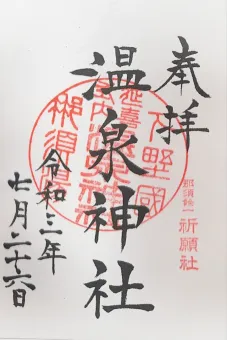 奉拝
那須餘一祈願社
温泉神社
下野國
延喜式内温泉神社
那須
令和三年
七月二十六日